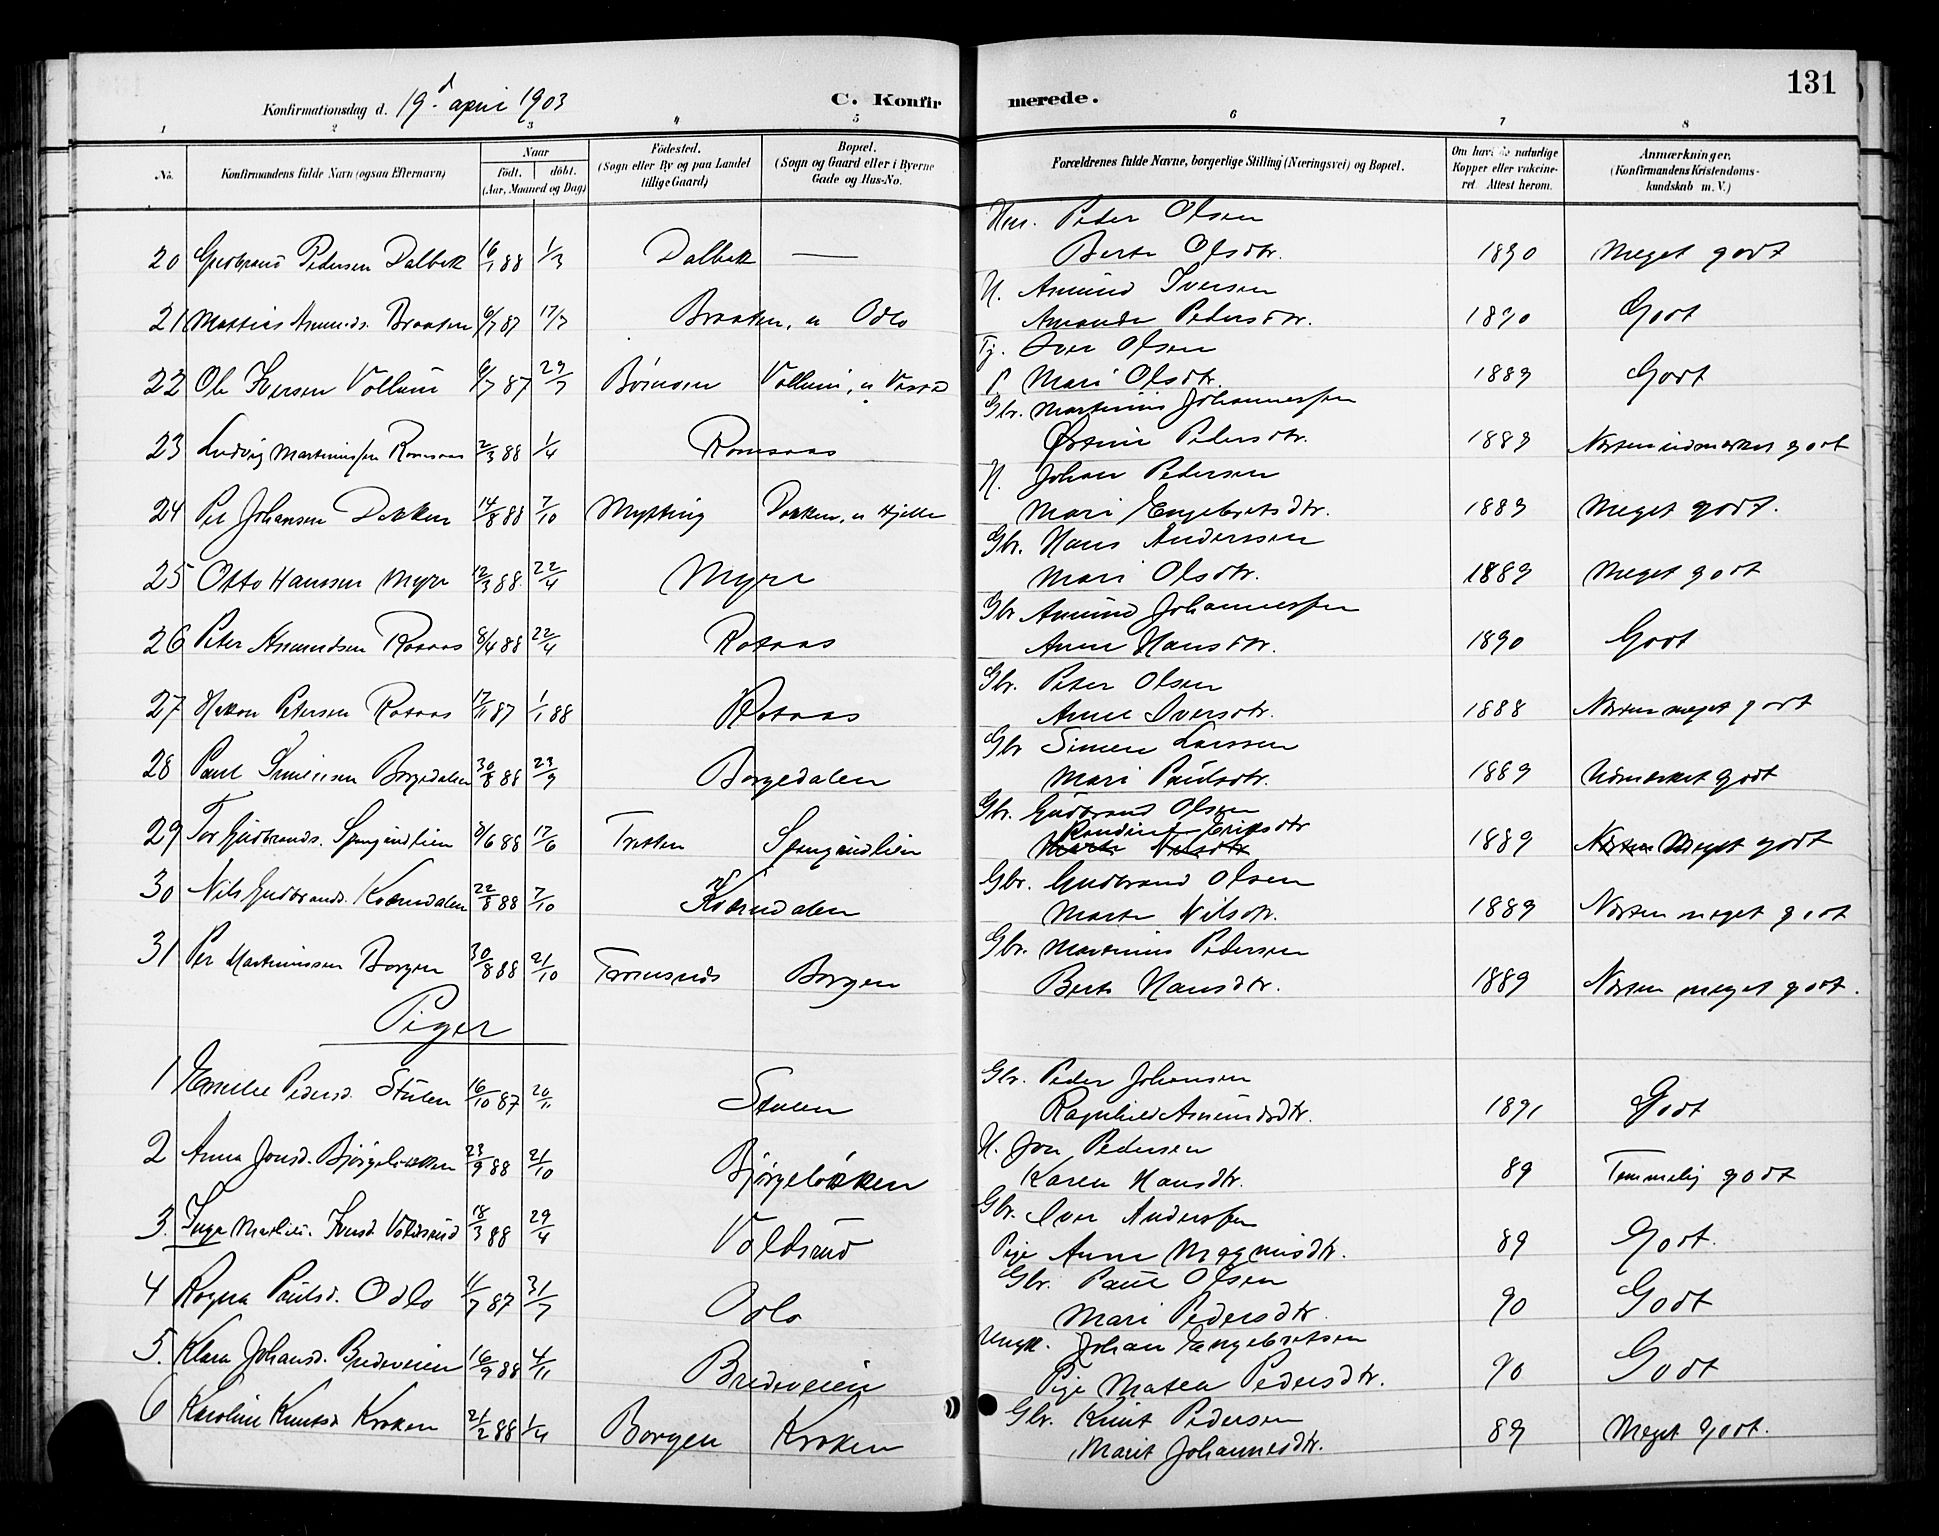 131
Konfirmationsdag d. 19d april 1903 C. Konfirmerede.
1 2 3 4 5 6 7 8
No. Konfirmandens fulde Navn (ogsaa Efternavn) Naar födt. döbt. (Aar, Maaned og Dag) Födested. (Sogn eller By og paa Landet tillige Gaard) Bopæl. (Sogn og Gaard eller i Byerne Gade og Hus-No. Forældrenes fulde Navne, borgerlige Stilling (Næringsvei) og Bopæl. Om havt de naturlige Kopper eller vakcineret. Attest herom. Anmærkninger. (Konfirmandens Kristendomskundskab m. V.)
Hus. Peder Olsen
20 Gudbrand Pedersen Dalbek 16/1 88 1/3 Dalbek — Berte Olsdtr. 1890 Meget godt
H. Amund Iversen
21 Mattias Amunds. Braaten 6/7 87 17/7 Braaten, u Odlo Amanda Pedersdtr. 1890 Godt
Tj. Iver Olsen
22 Ole Iversen Vollum 6/7 87 29/7 Vollum, u P Mari Olsdtr. 1889 Godt
Gbr. Martinius Johannessen
23 Ludvig Martiniussen Romsaas 2/3 88 1/4 Romsaas Pedersdtr. 1889 Næsten udmærket godt
H. Johan Pedersen
24 Per Johansen Dokken 14/8 88 7/10 Mytting Dokken, u Hjelle Mari Engebretsdtr. 1889 Meget godt.
Gbr. Hans Anderssen
25 Otto Hanssen Myre 12/3 88. 22/4 Myre Mari Olsdtr. 1889 Meget godt
Gbr Amund Johannessen
26 Peter Amundsen Rotaas 8/4 88 22/4 Rotaas Anne Hansdtr. 1890 Godt
Gbr. Peter Olsen
27 Hakon Petersen Rotaas 17/11 87 1/1 88 Rotaas Anne Iversdtr. 1888 Næsten meget godt
Gbr Simen Larssen
28 Paul Simensen Borgedalen 30/8 88 23/9 Borgedalen Mari Paulsdtr. 1889 Udmærket godt
Gbr. Gudbrand Olsen
Randine Eriksdtr
29 Tor Gudbrands. Spangrudlien 3/6 88 17/6 Tretten Spangrudlien Marte Nilsdtr 1889 Næsten Meget godt
Gbr. Gudbrand Olsen
30 Nils Gudbrands. Kværndalen 22/8 88 7/10 Kværndalen Marte Nilsdtr. 1889 Næsten meget godt
Gbr. Martinius Pedersen
31 Per Martiniussen Borgen 30/8 88 21/10 Tromsnes Borgen Berte Hansdtr. 1889 Næsten meget godt.
Piger
Gbr. Peder Johansen
1 Emelie Pedersd. Stulen 16/10 87 20/11 Stulen Ragnhild Amundsdtr. 1891 Godt
H. Jon Pedersen
2 Anna Jonsd. Bjørgeløkken 23/9 88 21/10 Bjørgeløkken Karen Hansdtr. 89 Temmelig godt
Gbr. Iver Anderssen
3. Inga Mathi. Iversd. Voldsrud 18/3 88 29/4 Voldsrud Pige Anne Magnusdtr. 89 Godt.
Gbr. Paul Olsen
4 Ragna Paulsd. Odlo 11/7 87 31/7 Odlo Mari Pedersdtr. 90 Godt
Ungk. Johan Engebretsen
5. Klara Johansd. Bredeveien 16/9 88 4/11 Bredeveien Pige Matea Pedersdtr. 90 Godt
Gbr. Knut Pedersen
6 Karoline Knutsd Kroken 21/2 88 1/4 Borgen Kroken Marit Johannesdtr. 89 Meget godt.